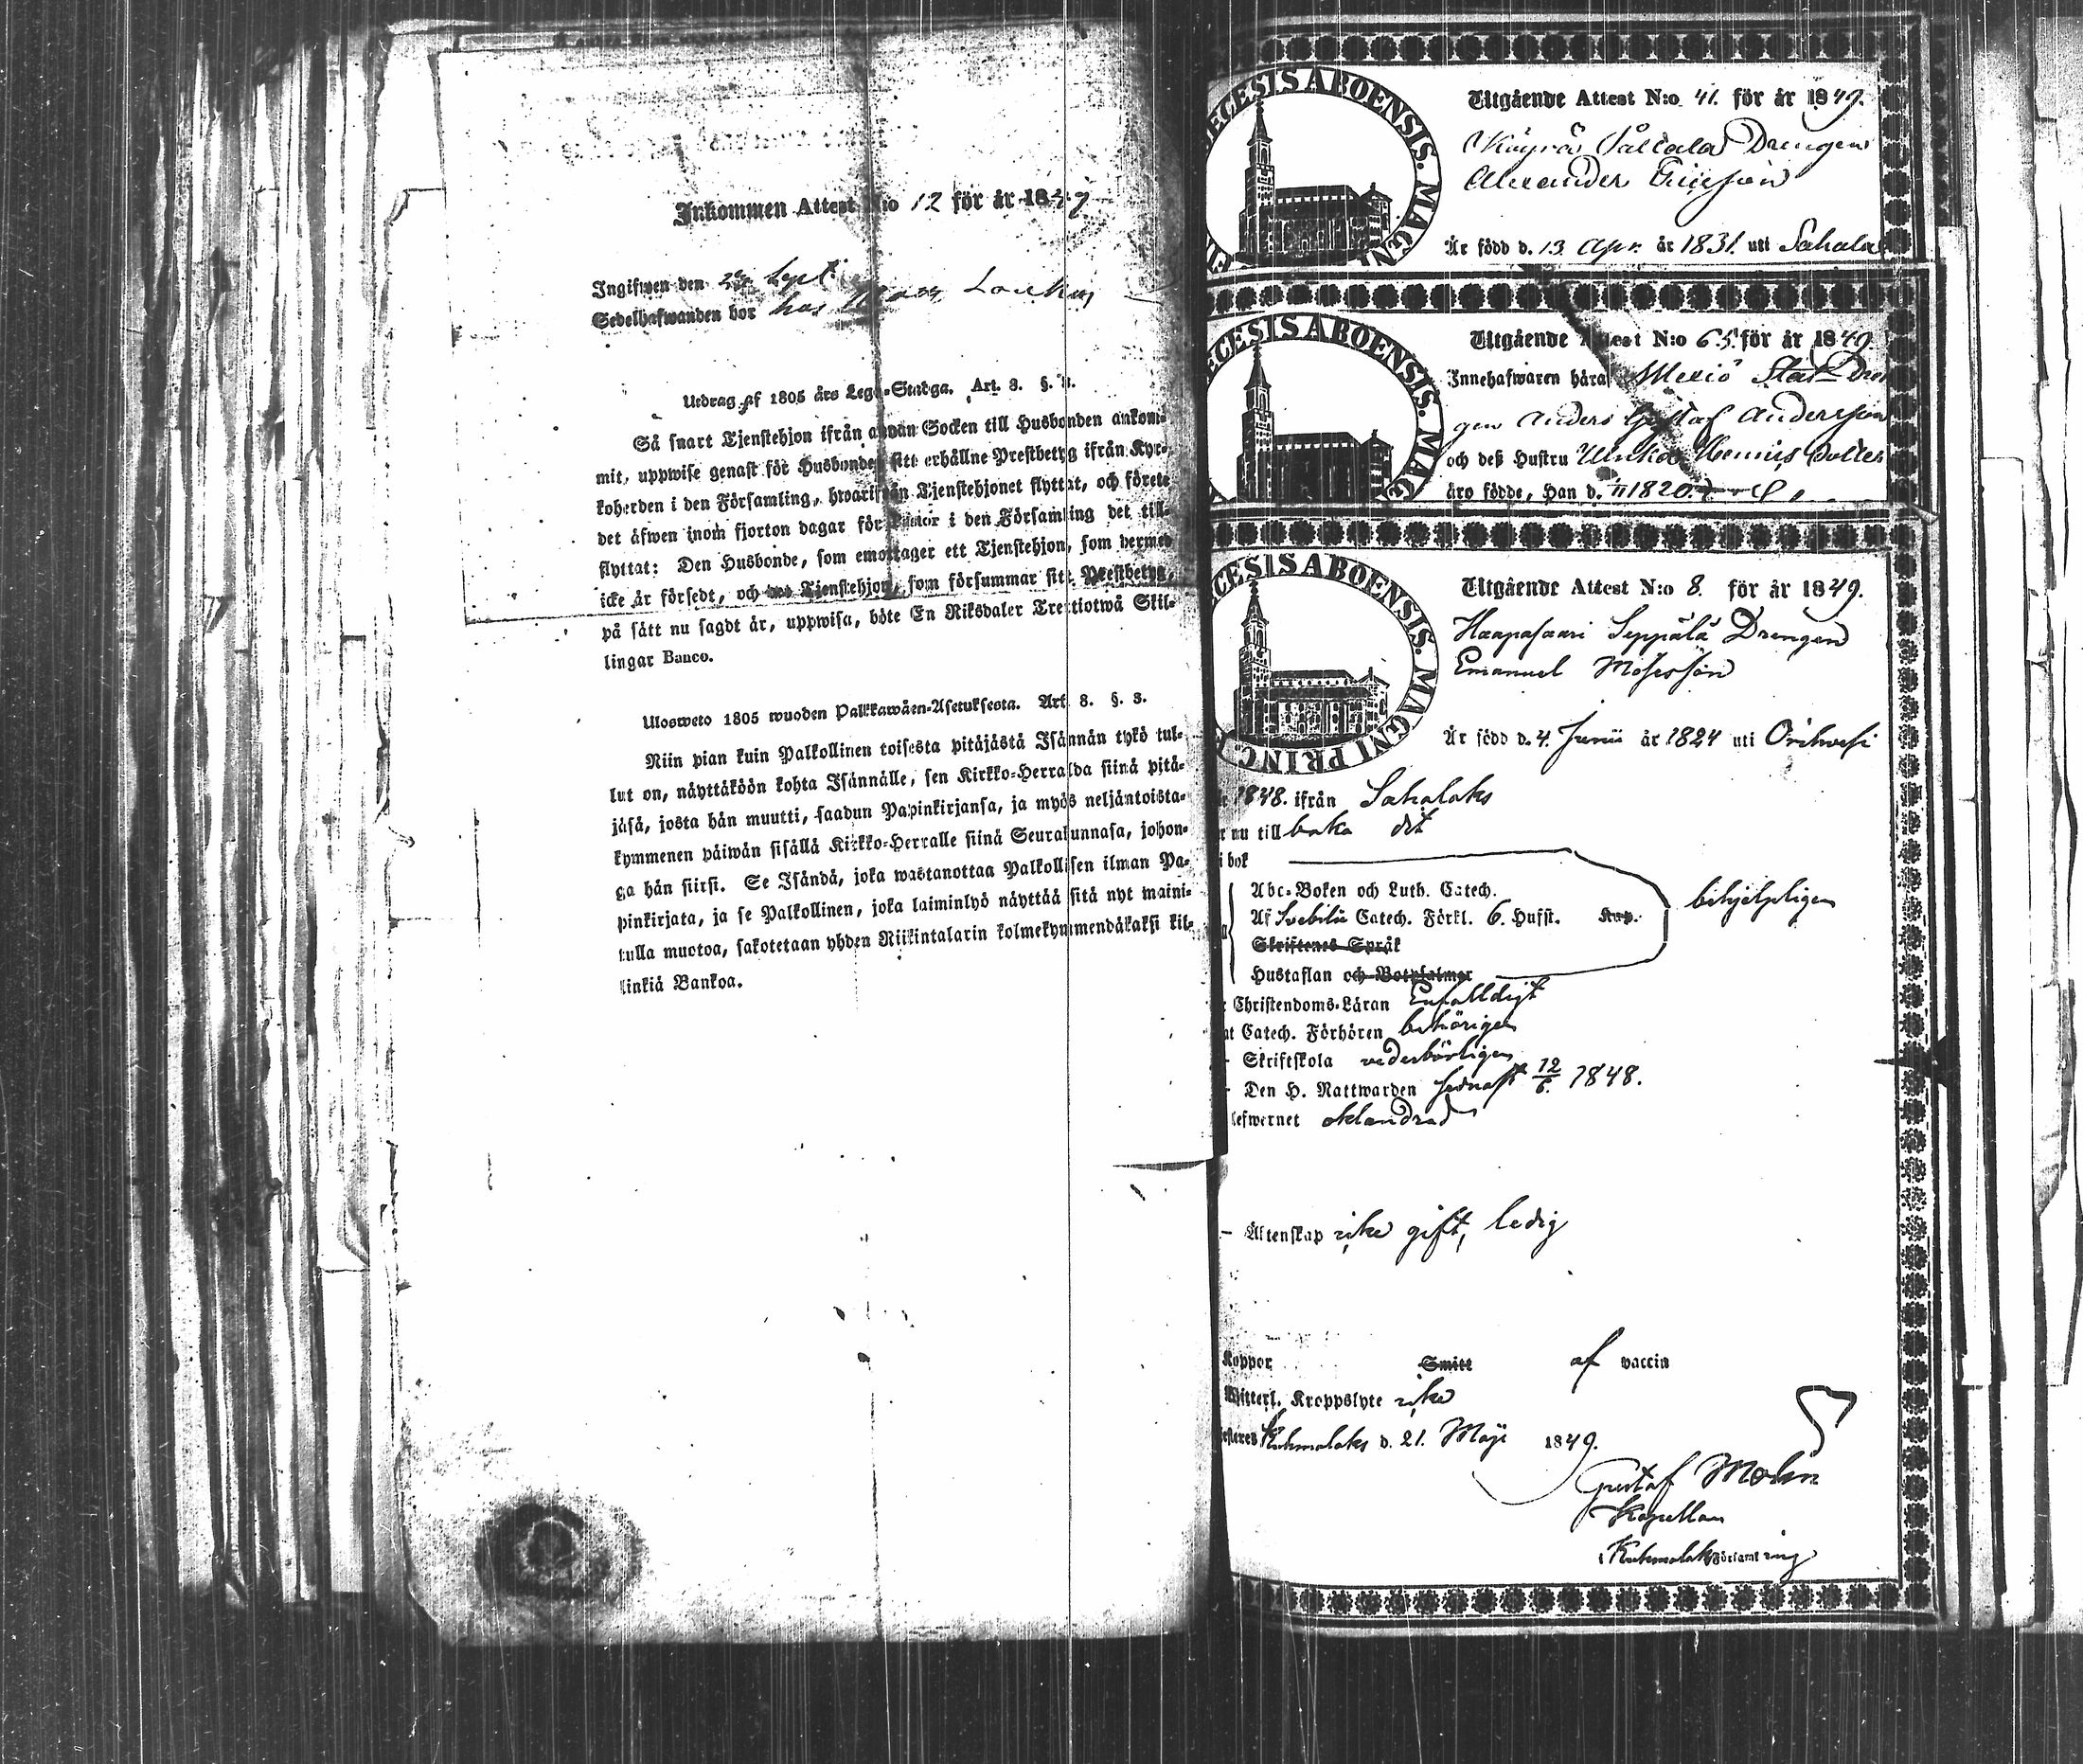 Inkommen Attest N:o 12 för år 1849
Ingifwen den 29 Sept.
Sedelhafwanden bor hos
Utdrag af 1805 års Lego-Stadga. Art. 8. §. 3.
Så snart Tjenstehjon ifrån annan Socken till Husbonden ankom-
mit, uppwise genast för Husbonden sitt erhållne Prestbetyg ifrån Kyr-
koherden i den Församling, hwarifrån Tjenstehjonet flyttat, och förete
det äfwen inom fjorton dagar för i den Församling det till-
flyttat: Den Husbonde, som emottager ett Tjenstehjon, som dermed
icke är försedt, och det Tjenstehjon, som försummar sitt Prestbetyg,
på sätt nu sagdt är, uppwisa, böte En Riksdaler Trettiotwå Skil-
lingar Banco.
Ulosweto 1805 wuoden Palkkawäen-Asetuksesta. Art. 8. §. 3.
Niin pian kuin Palkollinen toisesta pitäjästä Isännän tykö tul-
lut on, näyttäköön kohta Isännälle, sen Kirkko-Herralda siinä pitä-
jäsä, josta hän muutti, saadun Papinkirjansa, ja myös neljäntoista-
kymmenen päiwän sisällä Kirkko-Herralle siinä Seurakunnasa, johon-
ga hän siirsi. Se Isändä, joka wastanottaa Palkollisen ilman Pa-
pinkirjata, ja se Palkollinen, joka laiminlyö näyttää sitä nyt maini-
tulla muotoa, sakotetaan yhden Riikintalarin kolmekymmendäkaksi kil-
linkiä Bankoa.
ECESIS ABOENSIS. MAGNI
Utgående Attest N:o 41. för år 1849.
Drengen
Alexander Ericsson
Är född d. 13 Apr. år 1831. uti Sahala
ECESIS ABOENSIS. MAG
Utgående Attest N:o 65. för år 1849.
Innehafwaren häraf
gen Anders Gustaf Andersson
och deß Hustru Ulrika dotter
äro födde, Han d. 1820.
ECESIS ABOENSIS. MAGNI PRINC
Utgående Attest N:o 8. för år 1849.
Haapasaari Seppälä Drengen
Emanuel Mosisson
Är född d. 4. Junii år 1824 uti Orihvesi
1848. ifrån Sahalaks
nu till baka dit
i bok
Abc-Boken och Luth. Catech.
Af Svebilii Catech. Förkl. 6. Hufst. Kap.
behjelpligen
Skriftenes Språk
Hustaflan och Botpsalmer
Christendoms-Läran Enfalldigt
Catech. Förhören behörigen
Skriftskola vederbörligen
Den H. Nattwarden sednast 12/6. 1848.
lefwernet oklandrad
Äktenskap icke gift, ledig
Koppor Smitt af vaccin
Witterl. Kroppslyte icke
esteres Kuhmalaks d. 21. Maji 1849.
Gustaf Molin
Kapellan
Kuhmalaks Församling